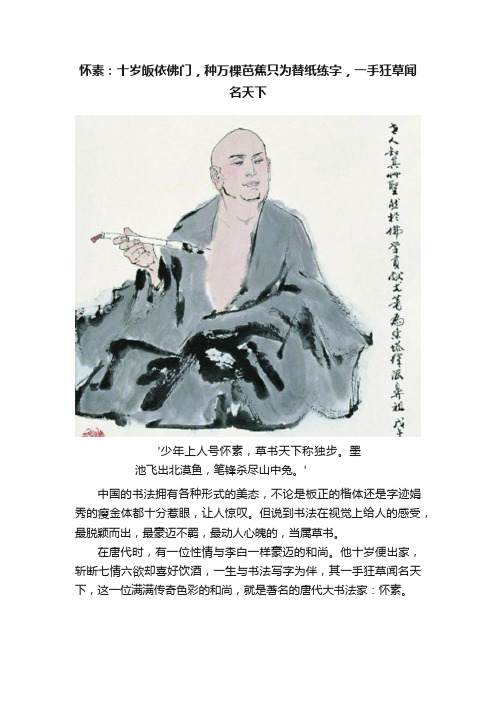 怀素：十岁皈依佛门，种万棵芭蕉只为替纸练字，一手狂草闻
名天下
世人知其艸聖然於佛學貢獻尤著為東塔律派鼻祖戊
'少年上人号怀素，草书天下称独步。墨
池飞出北溟鱼，笔锋杀尽山中兔。'
中国的书法拥有各种形式的美态，不论是板正的楷体还是字迹娟
秀的瘦金体都十分惹眼，让人惊叹。但说到书法在视觉上给人的感受，
最脱颖而出，最豪迈不羁，最动人心魄的，当属草书。
在唐代时，有一位性情与李白一样豪迈的和尚。他十岁便出家，
斩断七情六欲却喜好饮酒，一生与书法写字为伴，其一手狂草闻名天
下，这一位满满传奇色彩的和尚，就是著名的唐代大书法家：怀素。